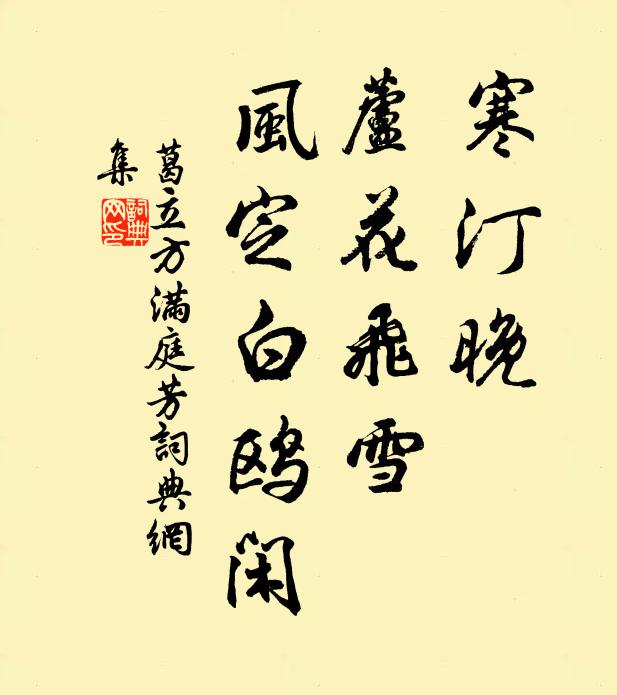 寒汀晚
蘆花飛雪
風定白鷗閑
葛立方滿庭芳詞典網
集
詞典
网印